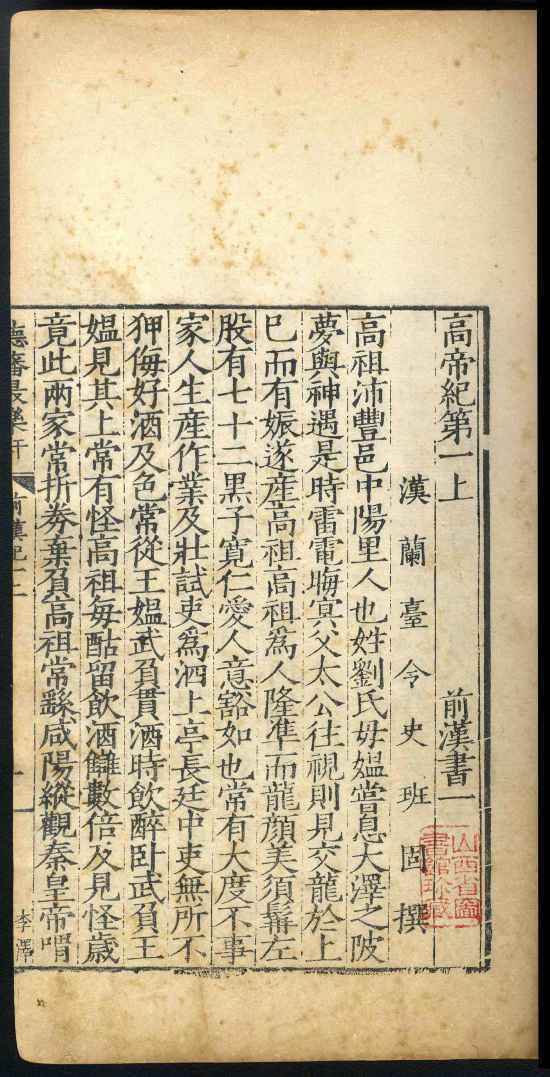 高帝紀第一上 前漢書一
漢蘭臺令史班固撰
高祖沛豐邑中陽里人也姓劉氏母媼嘗息大澤之陂
夢與神遇是時雷電晦冥父太公往視則見交龍於上
巳而有娠遂産高祖高祖爲人隆準而龍顔美須髯左
股有七十二黒子寛仁愛人意豁如也常有大度不事
家人生産作業及壯試吏爲泗上亭長廷中吏無所不
狎侮好酒及色常從王媼武負貰酒時飲醉卧武負王
媼見其上常有怪高祖每酤留飲酒讎數倍及見怪歳
竟此兩家常折券棄負高祖常繇咸陽縱觀秦皇帝喟
德藩最樂軒
前漢紀一
一
李澤
山西省圖
書館珍藏